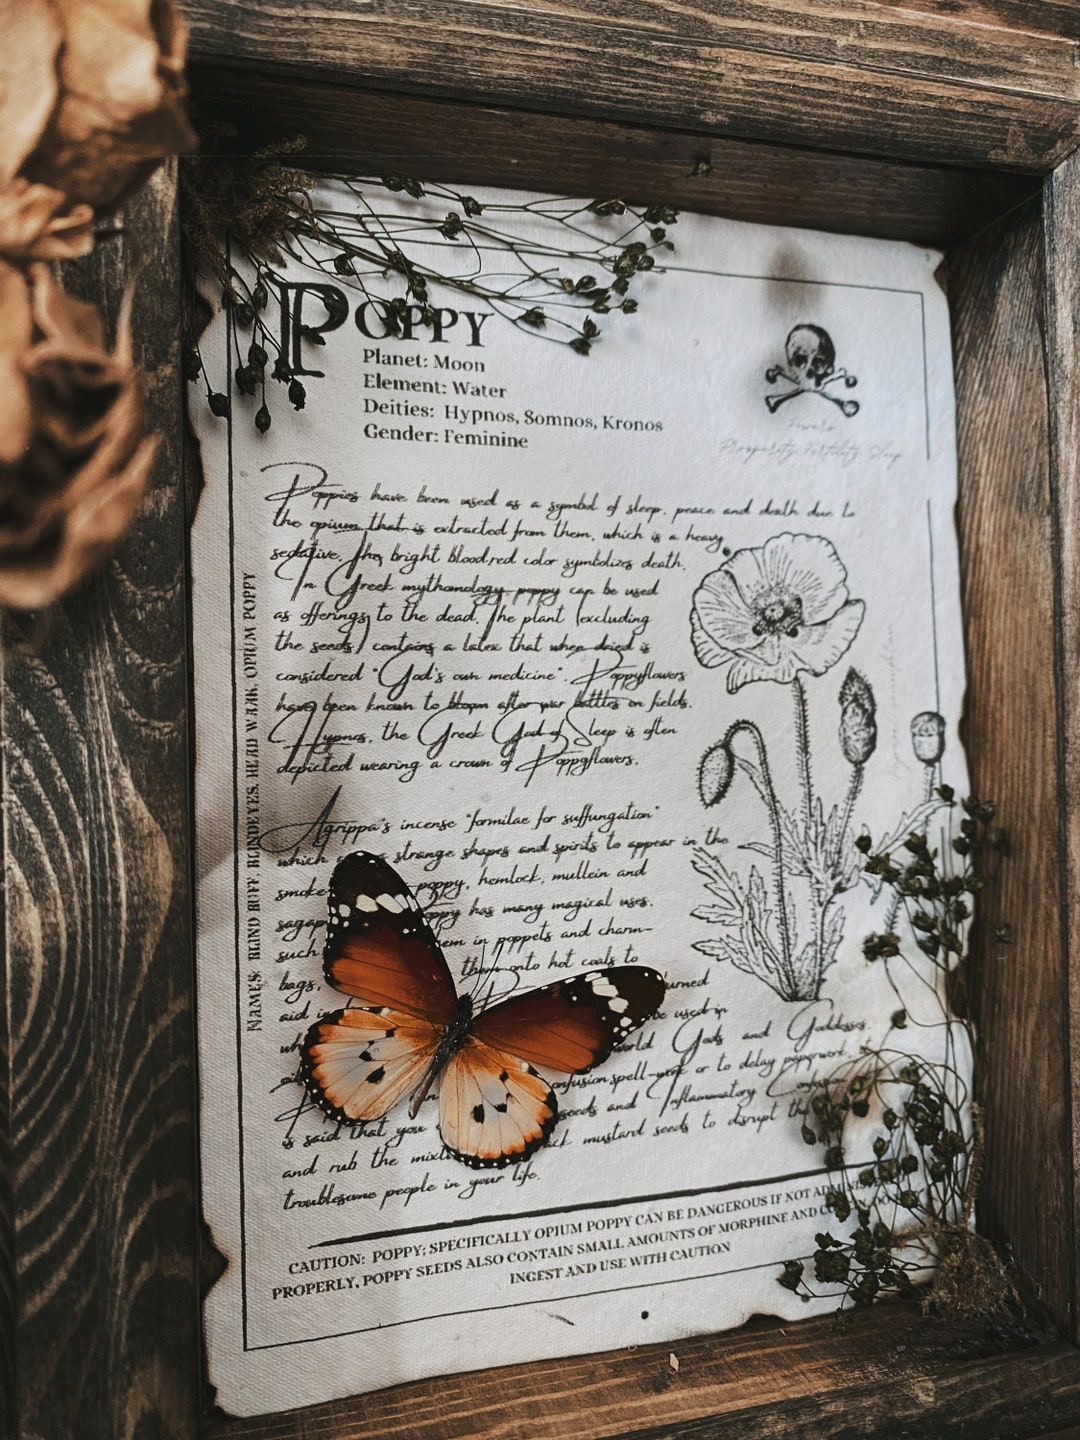 POPPY
Planet: Moon
Element: Water
Deities: Hypnos, Somnos, Kronos
Gender: Feminine
Prosperity Fertility Sleep
NAMES: BLIND BUFF, BLINDEYES, HEAD WAAK, OPIUM POPPY
Poppies have been used as a symbol of sleep, peace and death due to
the opium that is extracted from them, which is a heavy
sedative. The bright bloodred color symbolizes death.
In Greek mythomology poppy can be used
as offerings to the dead. The plant (excluding
the seeds) contains a latex that when dried is
considered "God's own medicine". Poppyflowers
have been known to bloom after war battles on fields.
Hypnos, the Greek God of Sleep is often
depicted wearing a crown of Poppyflowers.
Agrippa's incense "formilae for suffungation"
which strange shapes and spirits to appear in the
smoke poppy, hemlock, mullein and
poppy has many magical uses,
such them in poppets and charm-
bags, them onto hot coals to
aid in
be used in
Gods and Goddesses.
spell-work or to delay paperwork,
seeds and Inflammatory Confusion
is said that you mustard seeds to disrupt the
and rub the
troublesome people in your life.
CAUTION: POPPY; SPECIFICALLY OPIUM POPPY CAN BE DANGEROUS IF NOT
PROPERLY, POPPY SEEDS ALSO CONTAIN SMALL AMOUNTS OF MORPHINE AND
INGEST AND USE WITH CAUTION